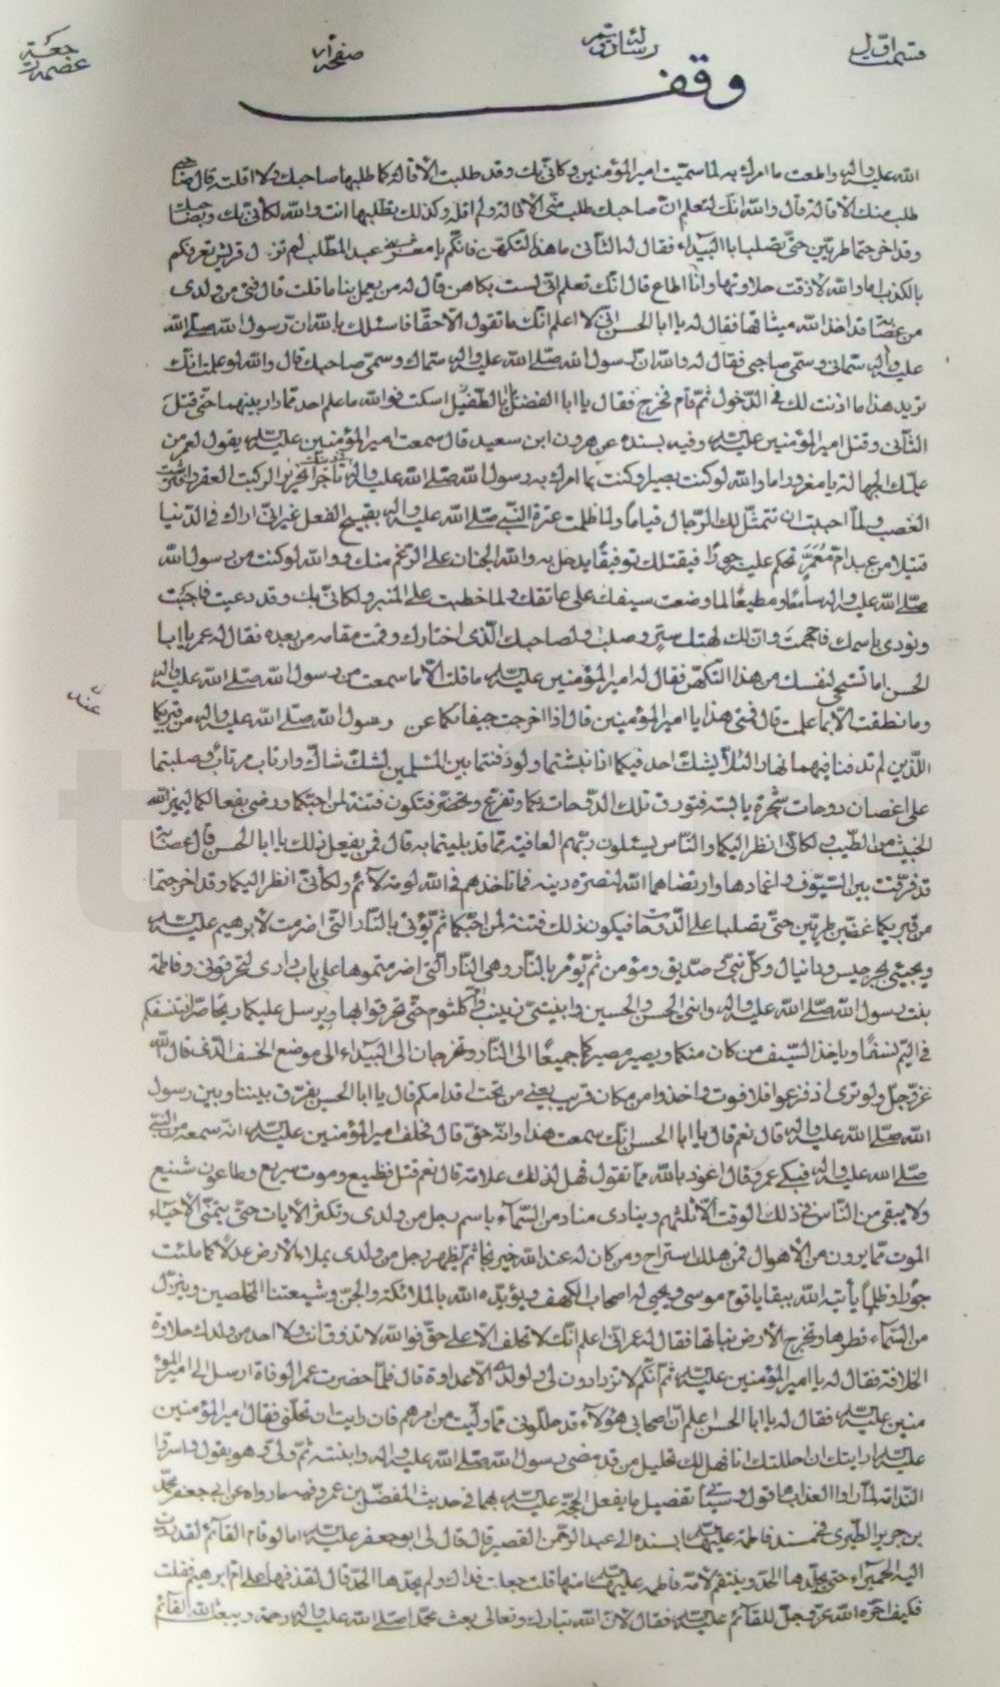 قسمت اول
رسالة
صفحة
وقف
الله عليه واله واطعت ما امرك به لما سميت امير المؤمنين وكاني بك وقد طلبت الاقالة كما طلبها صاحبك ولا اقالة قال صاحبي
طلب منك الاقالة قال والله انك لتعلم ان صاحبك طلب مني الاقالة ولم اقله وكذلك تطلبها انت والله لكأني بك وبصاحبك
وقد اخرجتما طريين حتى تصلبا بالبيداء فقال له الثاني ما هذا التكهن فانكم يا معشر بني عبد المطلب لم تزل قريش تعرفكم
بالكذب اما والله لا ذقت حلاوتها وانا اطاع قال انك تعلم اني لست بكاهن قال له من يعمل بنا ما قلت قال فتى من ولدي
من عصابة قد اخذ الله ميثاقها فقال له يا ابا الحسن اني لاعلم انك ما تقول الا حقا فاسئلك بالله ان رسول الله صلى الله
عليه واله سماني وسمى صاحبي فقال له والله ان رسول الله صلى الله عليه واله سماك وسمى صاحبك قال والله لو علمت انك
تريد هذا ما اذنت لك في الدخول ثم قام فخرج فقال يا ابا الفضيل يا ابا الطفيل اسكت فوالله ما علم احد ما دار بينهما حتى قتل
الثاني وقتل امير المؤمنين عليه السلام وفيه بسنده عن هرون ابن سعيد قال سمعت امير المؤمنين عليه السلام يقول لعمر من
علمك الجهالة يا مغرور اما والله لو كنت بصيرا وكنت بما امرك به رسول الله صلى الله عليه واله
الغصب ولما احببت ان تتمثل لك الرجال قياما ولما ظلمت عترة النبي صلى الله عليه واله بقبيح الفعل غير اني اراك في الدنيا
قتيلا من عبد ام معمر تحكم عليه جورا فيقتلك توفيقا يدخل به والله الجنان على الرغم منك ووالله لو كنت من رسول الله
صلى الله عليه واله سامعا ومطيعا لما وضعت سيفك على عاتقك ولما خطبت على المنبر ولكأني بك وقد دعيت فاجبت
ونودي باسمك فاحجمت وان لك لهتك ستر وصلبا ولصاحبك الذي اختارك وقمت مقامه من بعده فقال له عمر يا ابا
الحسن اما تستحي لنفسك من هذا التكهن فقال له امير المؤمنين عليه السلام ما قلت الا ما سمعت من رسول الله صلى الله عليه واله
وما نطقت الا بما علمت قال فمتى هذا يا امير المؤمنين قال اذا اخرجت جيفتاكما عن رسول الله صلى الله عليه واله من قبريكما
اللذين لم تدفنا فيهما نهارا لئلا يشك احد فيكما اذا نبشتما ولو دفنتما بين المسلمين لشك شاك وارتاب مرتاب وصلبتما
على اغصان دوحات شجرة يابسة فتورق تلك الدوحات بكما وتفرع وتخضر فتكون فتنة لمن احبكما ورضي بفعالكما ليميز الله
الخبيث من الطيب ولكأني انظر اليكما والناس يسئلون ربهم العافية مما قد بليتما به قال فمن يفعل ذلك يا ابا الحسن قال عصابة
قد فرقت بين السيوف واغمادها وارتضاهم الله لنصرة دينه فما تاخذهم في الله لومة لائم ولكأني انظر اليكما وقد اخرجتما
من قبريكما غضين طريين حتى تصلبا على الدوحات فيكون ذلك فتنة لمن احبكما ثم يؤتى بالنار التي اضرمت لابرهيم عليه السلام
ويحيى وجرجيس ودانيال وكل نبي وصديق ومؤمن ثم يؤمر بالنار وهي النار التي اضرمتموها على باب داري لتحرقوني وفاطمة
بنت رسول الله صلى الله عليه واله وابني الحسن والحسين وابنتي زينب وام كلثوم حتى تحرقوا بها ويرسل عليكما ريحا مرة فتنسفكم
في اليم نسفا وياخذ السيف من كان منكما ويصير مصيركما جميعا الى النار وتخرجان الى البيداء الى موضع الخسف الذي قال الله
عز وجل ولو ترى اذ فزعوا فلا فوت واخذوا من مكان قريب يعني من تحت اقدامكم قال يا ابا الحسن يفرق بيننا وبين رسول
الله صلى الله عليه واله قال نعم قال يا ابا الحسن انك سمعت هذا وانه حق قال فحلف امير المؤمنين عليه السلام انه سمعه من النبي
صلى الله عليه واله فبكى عمر وقال اعوذ بالله مما تقول فهل لذلك علامة قال نعم قتل فظيع وموت سريع وطاعون شنيع
ولا يبقى من الناس في ذلك الوقت الا ثلثهم وينادي مناد من السماء باسم رجل من ولدي وتكثر الآيات حتى يتمنى الاحياء
الموت مما يرون من الاهوال فمن هلك استراح ومن كان له عند الله خير نجا ثم يظهر رجل من ولدي يملا الارض عدلا كما ملئت
جورا وظلما يأتيه الله ببقايا قوم موسى ويحيى له اصحاب الكهف ويؤيده الله بالملائكة والجن وشيعتنا المخلصين وينزل
من السماء قطرها وتخرج الارض نباتها فقال له عمر اني اعلم انك لا تحلف الا على حق فوالله لا تذوق انت ولا احد من ولدك حلاوة
الخلافة فقال له يا امير المؤمنين عليه السلام ثم انكم لا تزدادون لي ولولدي الا عداوة قال فلما حضرت عمر الوفاة ارسل الى امير المؤ
منين عليه السلام فقال له يا ابا الحسن اعلم ان اصحابي هؤلاء قد حللوني مما وليت من امرهم فان رايت ان تحللني فقال امير المؤمنين
عليه السلام ارايتك ان حللتك انا فهل لك تحليل من قد مضى رسول الله صلى الله عليه واله وابنته ثم ولى وهو يقول واسروا
الندامة لما راوا العذاب اقول وسيأتي تفصيل ما يفعل الحجة عليه السلام بهما في حديث المفضل بن عمر وفيه ما رواه عن ابي جعفر محمد
بن جرير الطبري في مسند فاطمة عليها السلام بسنده الى عبد الرحمن القصير قال قال لي ابو جعفر عليه السلام اما لو قام القائم لقد ردت
اليه الحميراء حتى يجلدها الحد وينتقم لامه فاطمة عليها السلام منها قلت جعلت فداك ولم يجلدها الحد قال لقذفها على ام ابرهيم فقلت
فكيف اخره الله عز وجل للقائم عليه السلام فقال لان الله تبارك وتعالى بعث محمدا صلى الله عليه واله رحمة ويبعث القائم